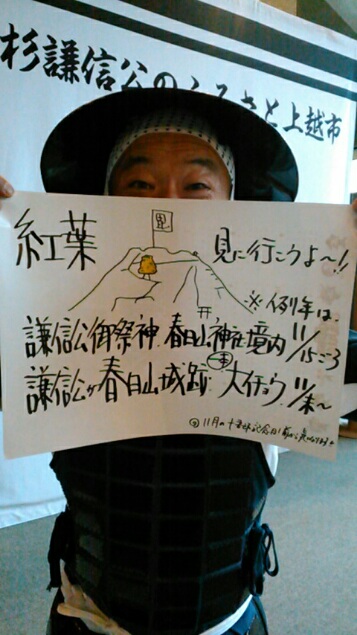 杉謙信公のふるさと上越市
紅葉
毘
見に行こうよ〜!!
※例年は、
謙信公御祭神 春日山神社境内 11/15ごろ
謙信公ヶ春日山城跡 大イチョウ 11/末〜